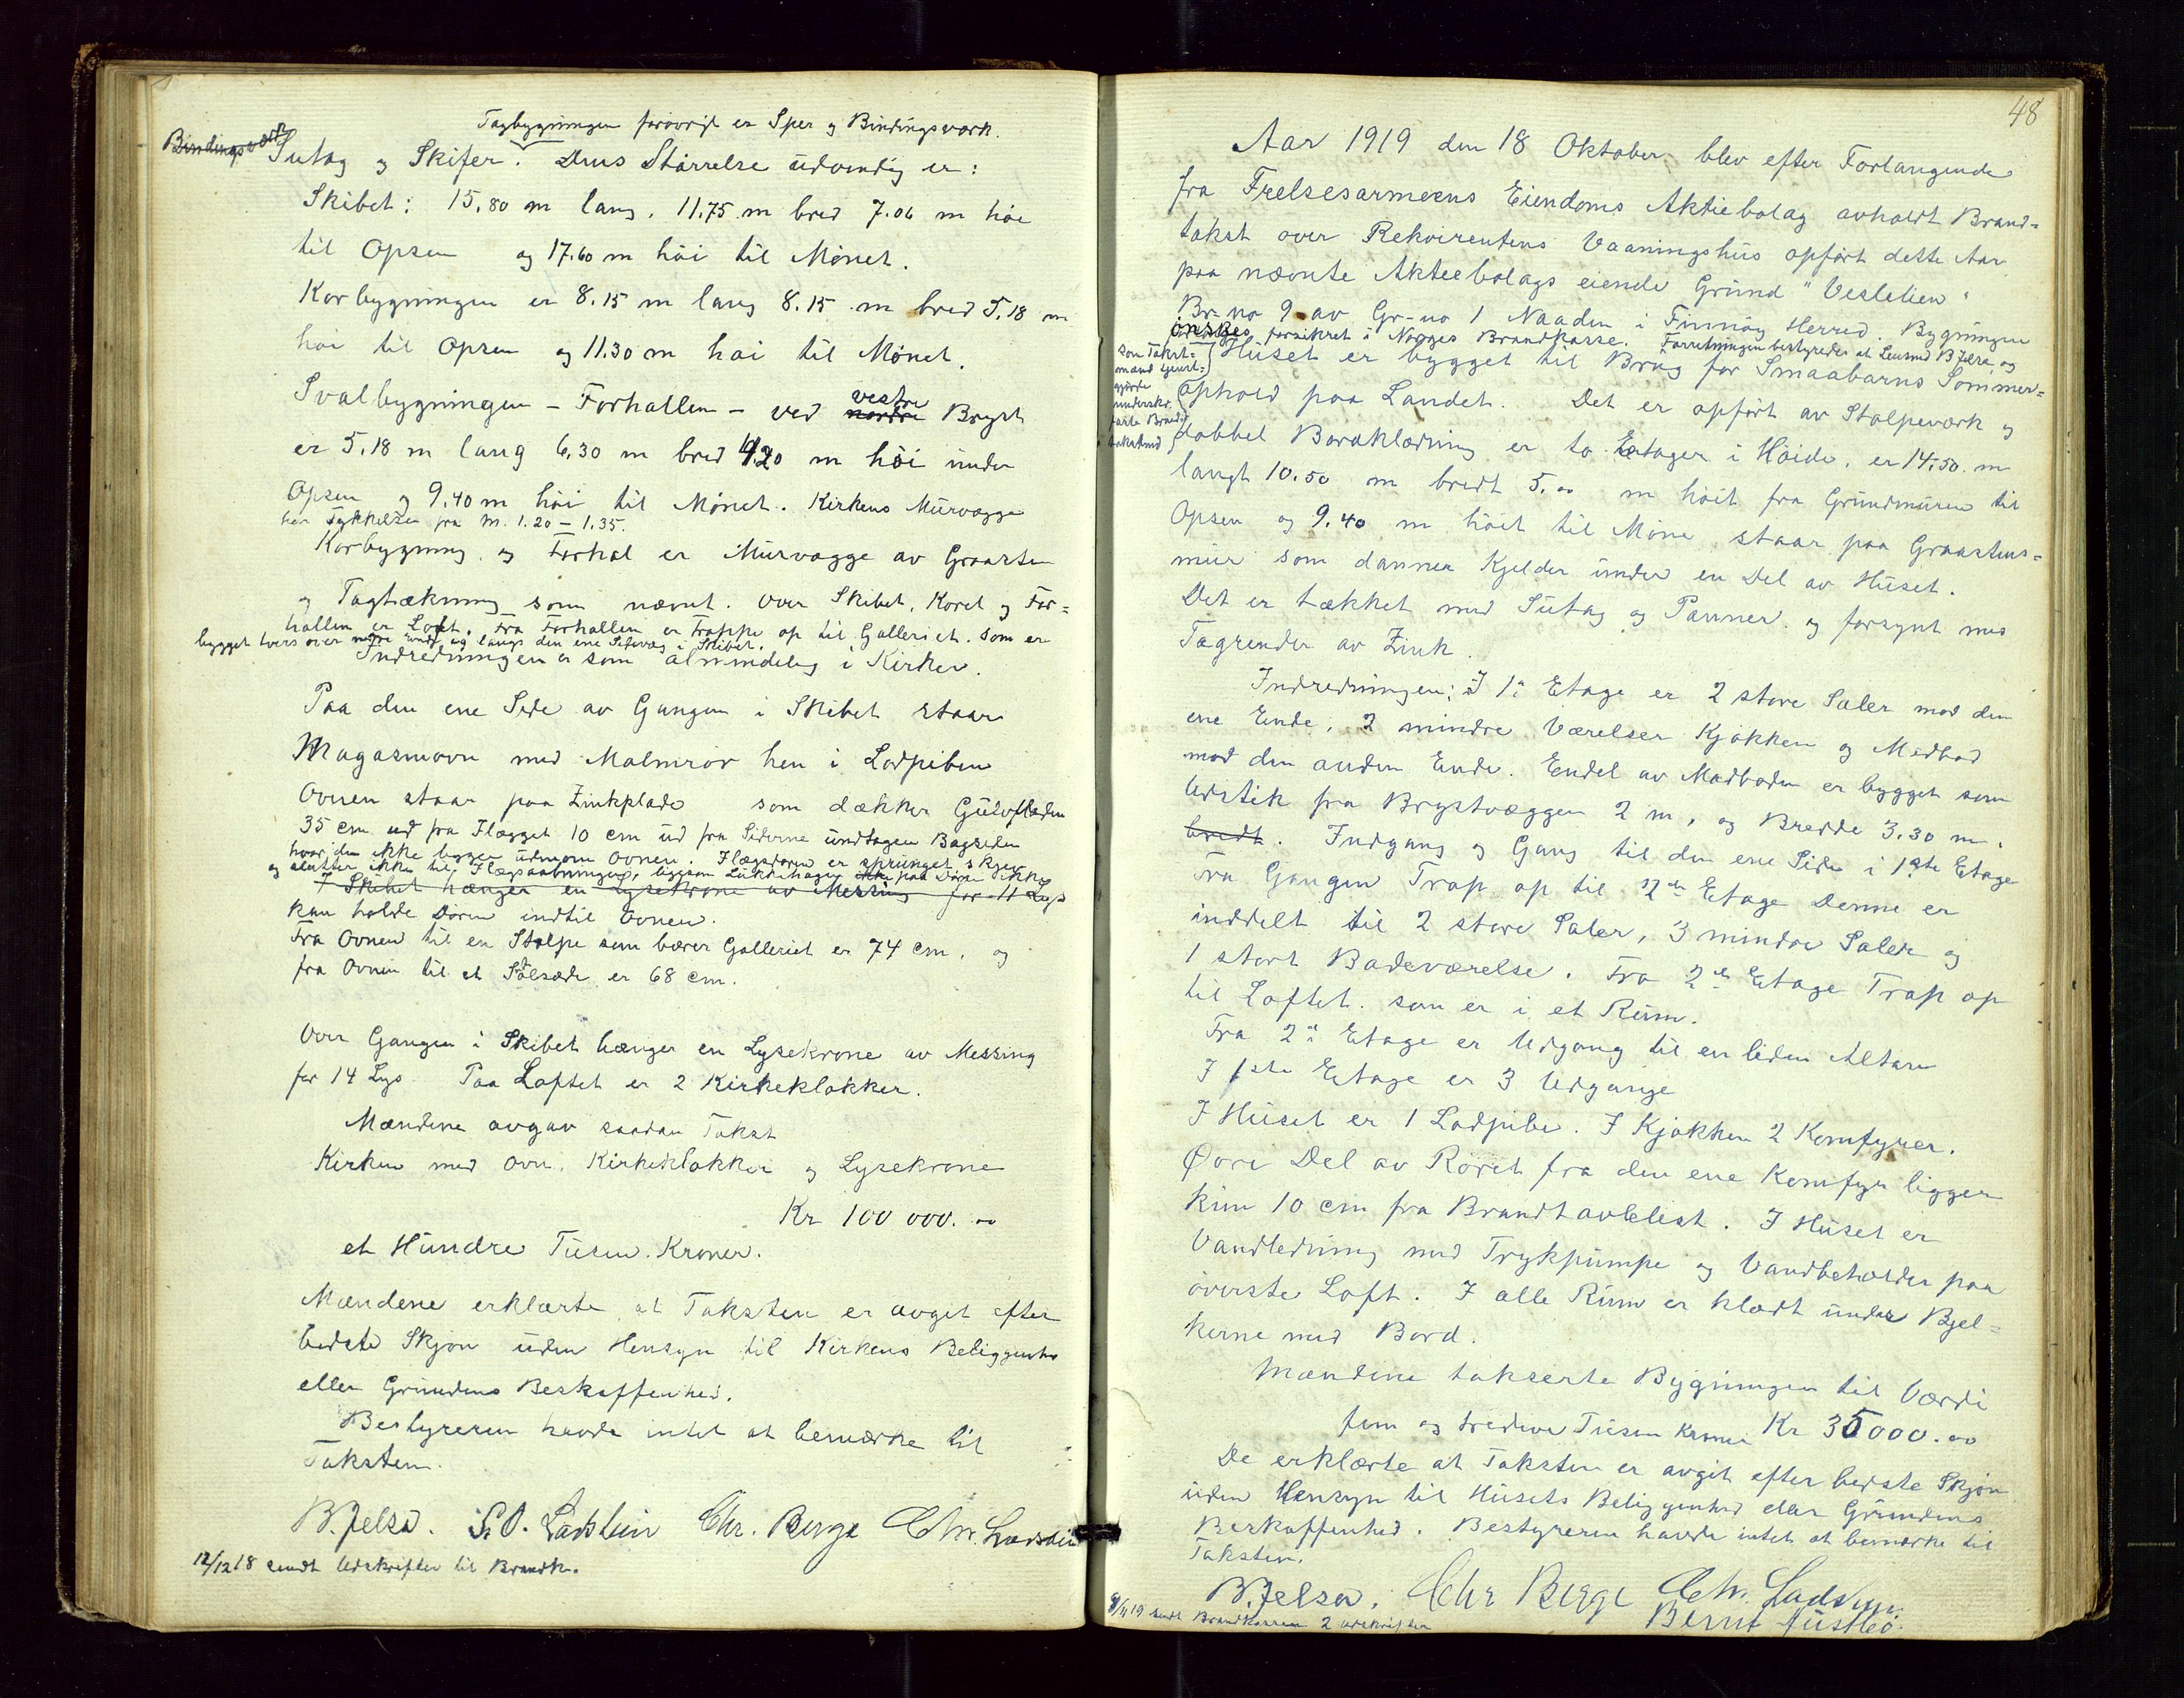 Tagbygningen forøvrigt er Sper og Bindingsværk.
Bindingsværk
Sutag og Skifer. Dens Størrelse udvendig er:
Skibet: 15.80 m lang, 11.75 m bred 7.06 m høi
til Opsen og 17.60 m høi til Mønet.
Korbygningen er 8.15 m lang 8.15 m bred 5.18 m
høi til Opsen og 11.30 m høi til Mønet.
Svalbygningen - Forhallen - ved nordre vestre Bryst
er 5.18 m lang 6.30 m bred 4.20 m høi under
Opsen og 9.40 m høi til Mønet. Kirkens Murvægge
har Tykkelse fra m. 1.20 - 1.35.
Korbygning og Forhal er Murvægge av Graasten
og Tagtækning som nævnt. Over Skibet, Koret og For=
hallen er Loft. Fra Forhallen er Trappe op til Galleriet. som er
bygget tvers over nedre Ende og langs den ene Sidevæg i Skibet.
Indredningen er som almindelig i Kirker.
Paa den ene Side av Gangen i Skibet staar
Magasinovn med Malmrør hen i Lodpiben
Ovnen staar paa Zinkplade som dækker Gulvfladen
35 cm ud fra Flægget 10 cm ud fra Siderne undtagen Bagsiden
hvor den ikke ligger udenom Ovnen. Flægdøren er sprunget, skjev
og slutter ikke til Flægaabningen, ligesom Lukkehagen ikke paa Døren ikke
I Skibet hænger en Lysekrone av Messing for 11 Lys
kan holde Døren indtil Ovnen.
Fra Ovnen til en Stolpe som bærer Galleriet er 74 cm, og
fra Ovnen til et Stolsæde er 68 cm.
Over Gangen i Skibet hænger en Lysekrone av Messing
for 14 Lys. Paa Loftet er 2 Kirkeklokker.
Mændene avgav saadan Takst
Kirken med Ovn, Kirkeklokker og Lysekrone
Kr 100 000. 00
et Hundre Tusen Kroner.
Mændene erklærte at Taksten er avgit efter
bedste Skjøn uden Hensyn til Kirkens Beliggenhe
eller Grundens Beskaffenhed.
Bestyreren havde intet at bemærke til
Taksten.
B. Jelsa. S. O. Ladstein Chr. Berge Chr. Ladstein
12/12 18 sendt Udskrifter til Brandk.
48
Aar 1919 den 18 Oktober blev efter Forlangende
fra Frelsesarmeens Eiendoms Aktiebolag avholdt Brand=
takst over Rekvirentens Vaaningshus opført dette Aar
paa nævnte Aktiebolags eiende Grund "Veslelien"
Br-no 9 av Gr-no 1 Naaden i Finnøy Herred. Bygningen
ønskes forsikret i Norges Brandkasse. Forretningen bestyredes at Lensmd B Jelsa, og
som Takst=
mænd
gjorde
underskr.
Brand
takstmd
Huset er bygget til Brug for Smaabarns Sommer=
ophold paa Landet. Det er opført av Stolpeværk og
dobbel Bordklædning er to Etager i Høide, er 14.50 m
langt 10.50 m bredt 5.00 m høit fra Grundmuren til
Opsen og 9.40 m høit til Møne, staar paa Graastens=
mur som danner Kjelder under en Del av Huset.
Det er tækket med Sutag og Panner og forsynt med
Tagrender av Zink.
Indredningen: I 1ste Etage er 2 store Saler mod den
ene Ende, 2 mindre Værelser Kjøkken og Madbod
mod den anden Ende. Endel av Madboden er bygget som
Udstik fra Brystvæggen 2 m, og Bredde 3.30 m.
bredt. Indgang og Gang til den ene Side i 1ste Etage
Fra Gangen Trap op til 2den Etage Denne er
inddelt til 2 store Saler, 3 mindre Saler og
1 stort Badeværelse. Fra 2de Etage Trap op
til Loftet. som er i et Rum.
Fra 2den Etage er Udgang til en liden Altan
I 1ste Etage er 3 Udgange
I Huset er 1 Lodpibe. I Kjøkken 2 Komfyrer.
Øvre Del av Røret fra den ene Komfyr ligger
kun 10 cm fra Brandtavlelist. I Huset er
Vandledning med Trykpumpe og Vandbeholder paa
øverste Loft. I alle Rum er klædt under Bjel=
kerne med Bord.
Mændene takserte Bygningen til Værdi
fem og tredeve Tusen Kroner Kr 35000.00
De erklærte at Taksten er avgit efter bedste Skjøn
uden Hensyn til Husets Beliggenhed eller Grundens
Beskaffenhed. Bestyreren havde intet at bemærke til
Taksten.
B. Jelsa. Chr Berge Chr. Ladstein.
9/11 19 sendt Brandkassen 2 Udskrifter